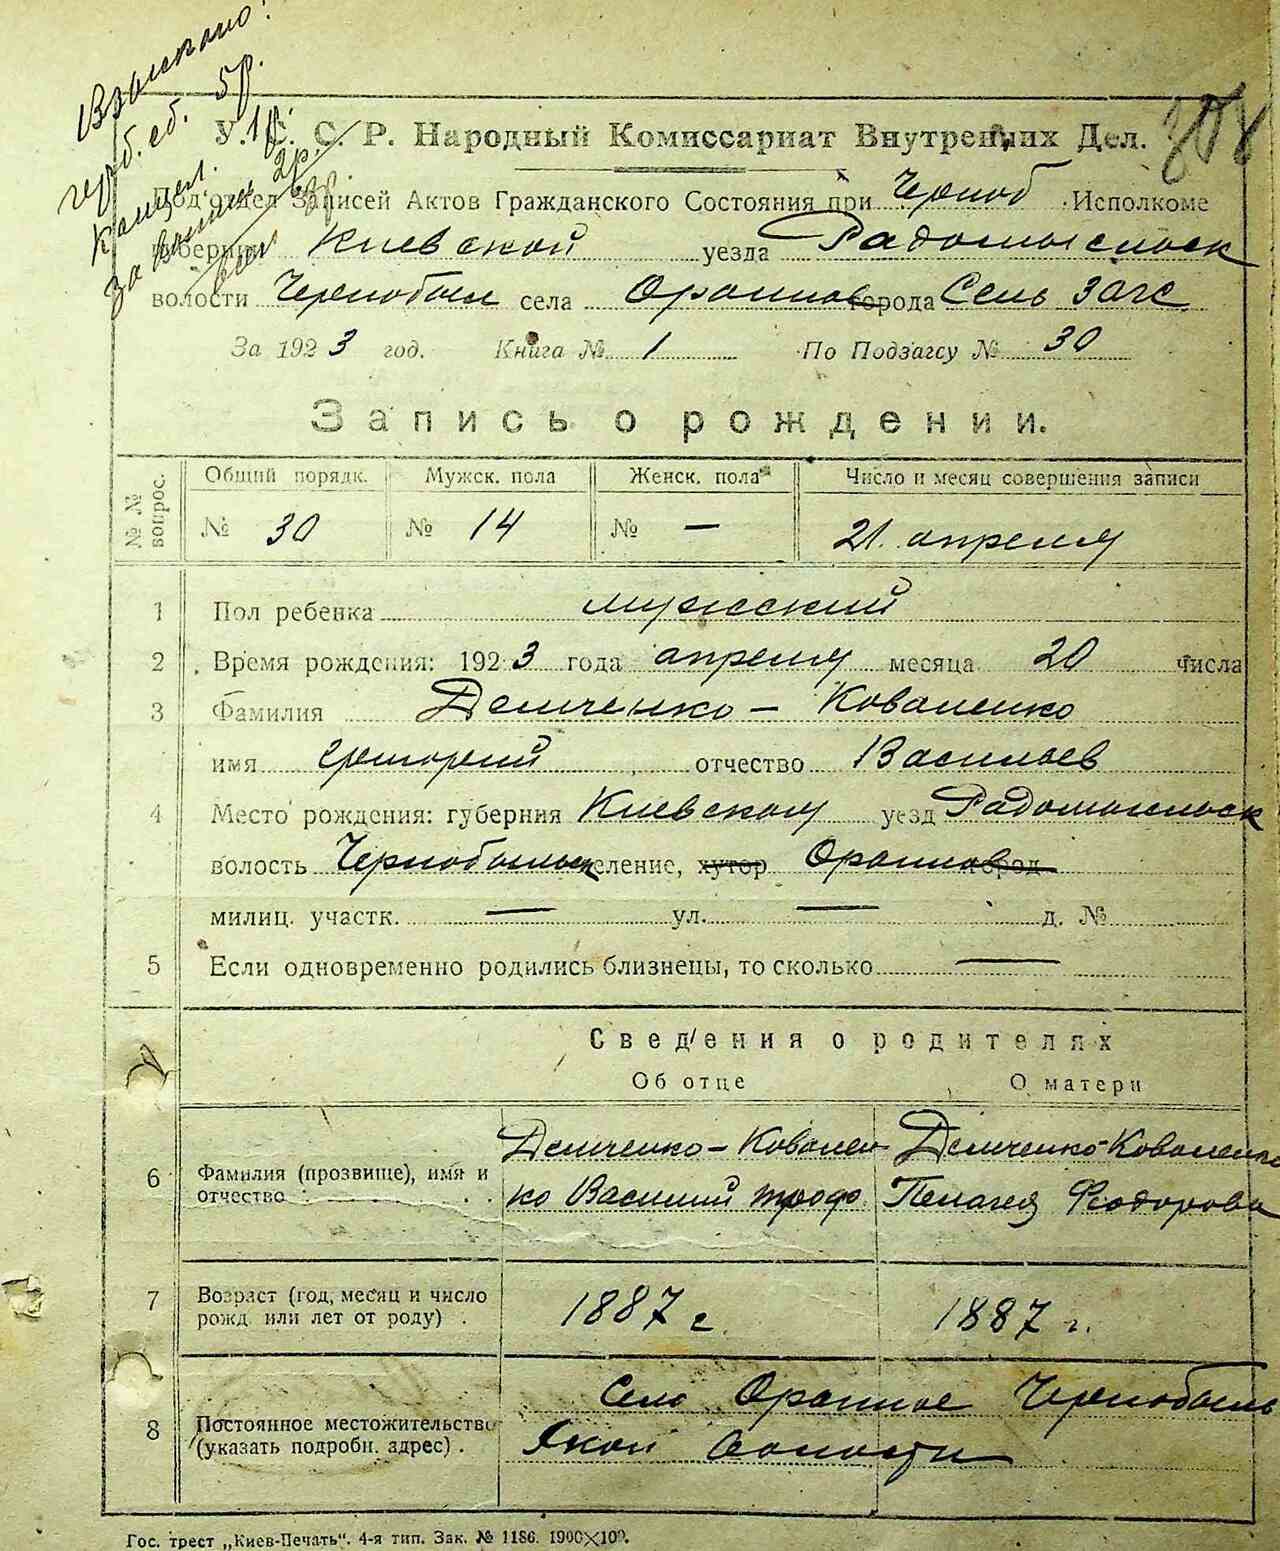 Взыскано:
герб. сб. 5р.
Канцел. 1р.
За бланк 2р.
308
У. С. С. Р. Народный Комиссариат Внутренних Дел.
Под'отдел Записей Актов Гражданского Состояния при Черноб Исполкоме
губернии Киевской уезда Радомысльск
волости Чернобыл села Оранное города Сель загс
За 1923 год. Книга № 1 По Подзагсу № 30
Запись о рождении.
№ № вопрос. Общий порядк. Мужск. пола Женск. пола Число и месяц совершения записи
№ 30 № 14 № — 21. апреля
1 Пол ребенка мужский
2 Время рождения: 1923 года апреля месяца 20 числа
3 Фамилия Демченко – Коваленко
имя григорий отчество Васильев
4 Место рождения: губерния Киевская уезд Радомысльск
волость Чернобыльск селение, хутор Оранное город
милиц. участк. — ул. — д. №
5 Если одновременно родились близнецы, то сколько —
Сведения о родителях
Об отце О матери
6 Фамилия (прозвище), имя и отчество
Демченко – Ковален
ко Василий троф.
Демченко-Коваленко
Пелагея Феодорова
7 Возраст (год, месяц и число рожд. или лет от роду) . 1887 г. 1887 г.
8 Постоянное местожительство (указать подробн. адрес) .
Село Оранное Чернобыль
ской волости
Гос. трест „Киев-Печать". 4-я тип. Зак. № 1186. 1900×100.